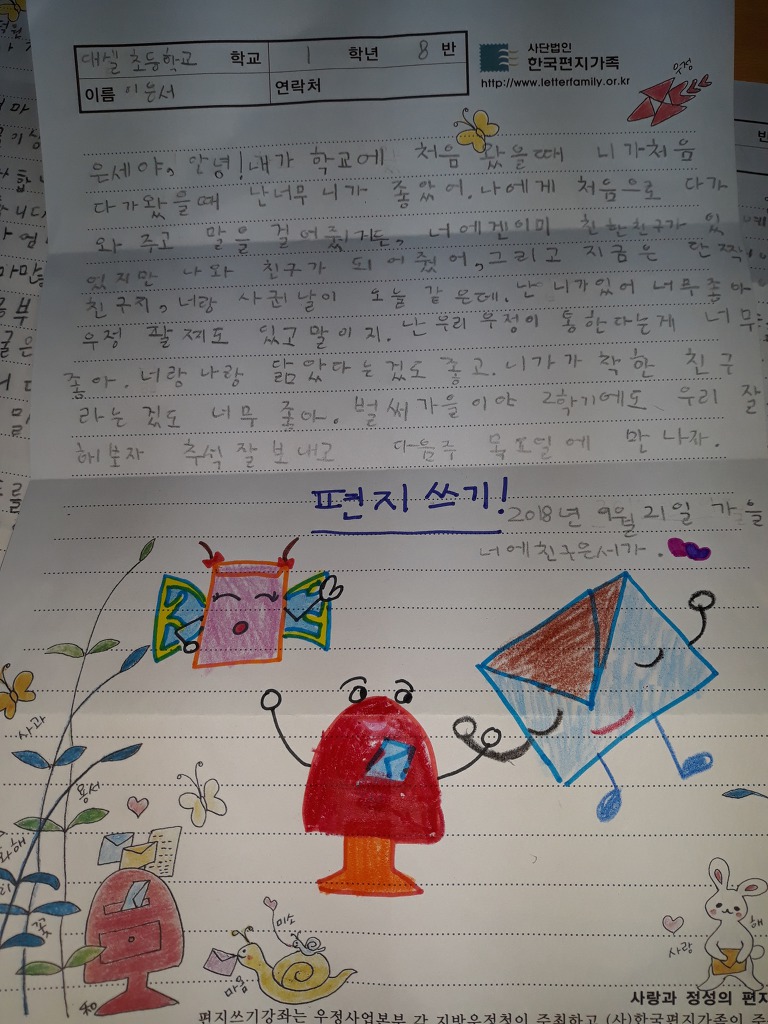 대실 초등학교 학교 1 학년 8 반
이름 이은서 연락처
사단법인
한국편지가족
http://www.letterfamily.or.kr
우정
은세야, 안녕! 내가 학교에 처음 왔을때 니가처음
다가왔을때 난너무 니가 좋았어. 나에게 처음으로 다가
와 주고 말을 걸어줬거든, 너에겐이미 친한친구가 있
었지만 나와 친구가 되어줬어, 그리고 지금은 단짝
친구지, 너랑 사귄날이 오늘 같은데. 난 니가있어 너무좋아
우정 팔찌도 있고말이지. 난 우리 우정이 통한다는게 너무
좋아. 너랑 나랑 닮았다는것도 좋고. 니가가 착한 친구
라는 것도 너무 좋아. 벌써가을이야 2학기에도 우리 잘
해보자 추석 잘보내고 다음주 목요일에 만나자.
편지쓰기!
2018년 9월 21일 가을
너에친구은서가.
사과
용서
화해
꽃
미소
마음
사랑
해
사랑과 정성의 편지
편지쓰기강좌는 우정사업본부 각 지방우정청이 주최하고 (사)한국편지가족이 주